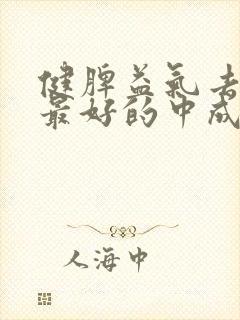 健脾益气去
最好的中成
人海中